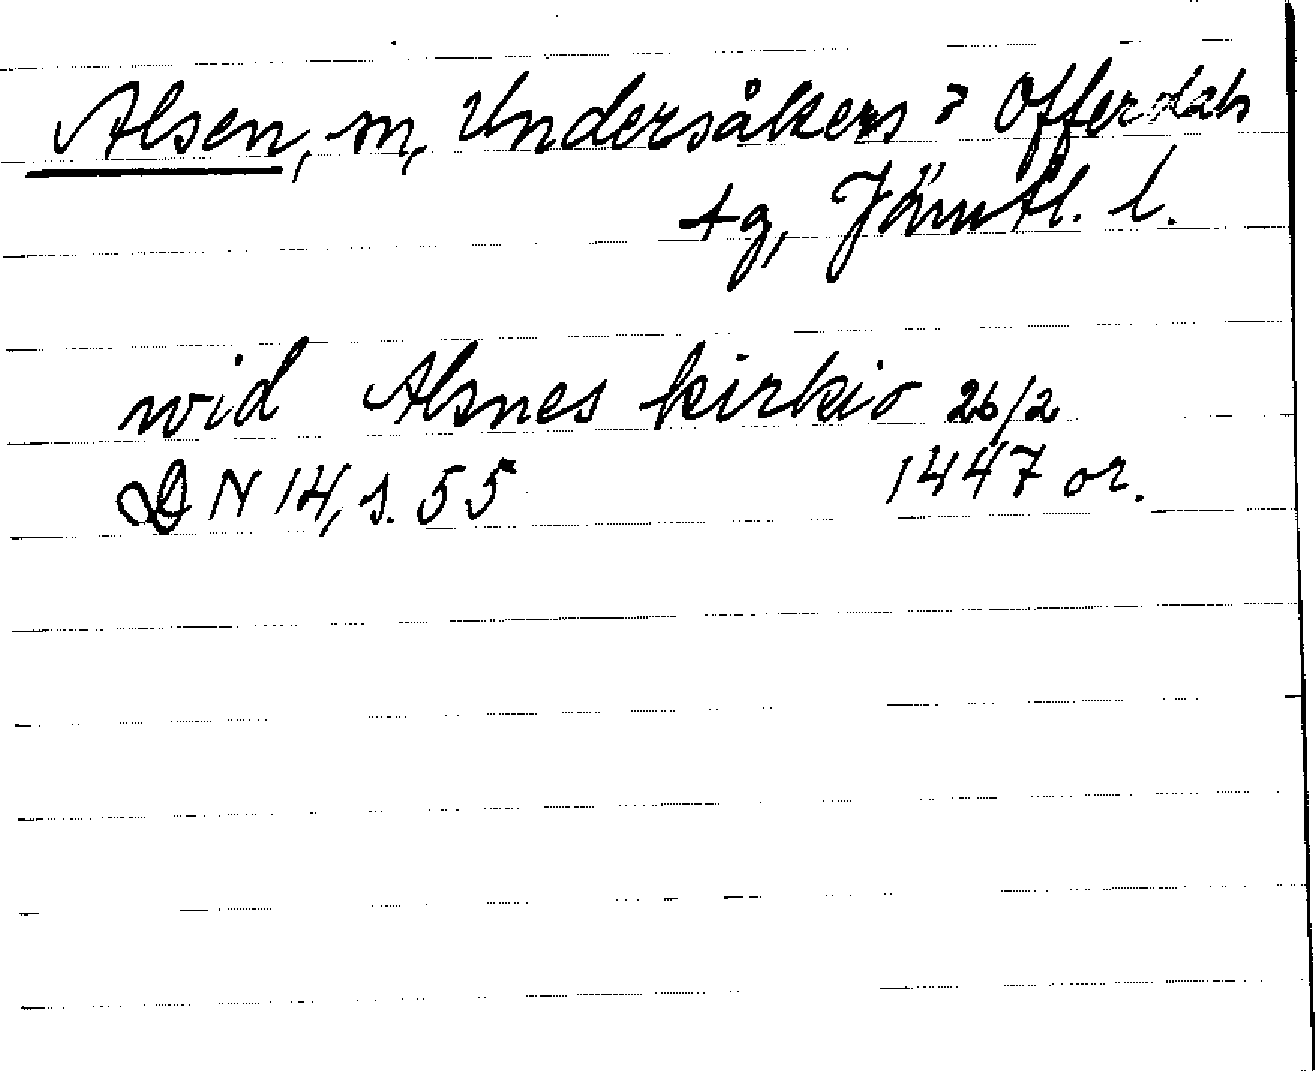 Alsen, sn, Undersåkers o Offerdals
tg, Jämtl. l.
wid Alsnes kirkio 26/2
DN 14, s. 55 1447 or.